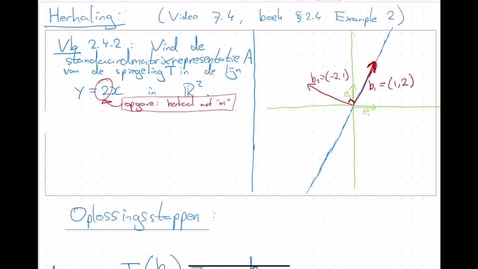 Herhaling: (Video 7.4, boek § 2.4 Example 2)
Vb 2.4.2: Vind de
standaardmatrixrepresentatie A
van de spiegeling T in de lijn
y = 2x in ℝ².
opgave: herhaal met "m"
b₁=(-2,1)
b₁=(1,2)
e₂
e₁
Oplossingsstappen:
T(b